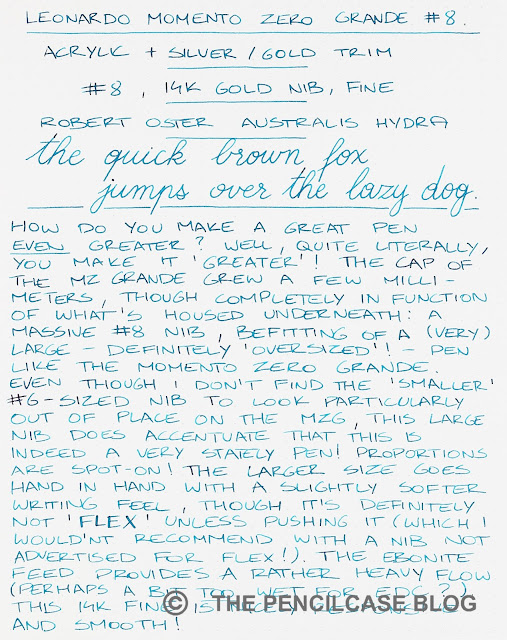 LEONARDO MOMENTO ZERO GRANDE #8.
ACRYLIC + SILVER / GOLD TRIM
#8, 14K GOLD NIB, FINE
ROBERT OSTER AUSTRALIS HYDRA
the quick brown fox
jumps over the lazy dog.
HOW DO YOU MAKE A GREAT PEN
EVEN GREATER? WELL, QUITE LITERALLY,
YOU MAKE IT 'GREATER'! THE CAP OF
THE MZ GRANDE GREW A FEW MILLI-
METERS, THOUGH COMPLETELY IN FUNCTION
OF WHAT'S HOUSED UNDERNEATH: A
MASSIVE #8 NIB, BEFITTING OF A (VERY)
LARGE - DEFINITELY 'OVERSIZED'! - PEN
LIKE THE MOMENTO ZERO GRANDE.
EVEN THOUGH I DON'T FIND THE 'SMALLER'
#6-SIZED NIB TO LOOK PARTICULARLY
OUT OF PLACE ON THE MZG, THIS LARGE
NIB DOES ACCENTUATE THAT THIS IS
INDEED A VERY STATELY PEN! PROPORTIONS
ARE SPOT-ON! THE LARGER SIZE GOES
HAND IN HAND WITH A SLIGHTLY SOFTER
WRITING FEEL, THOUGH IT'S DEFINITELY
NOT 'FLEX' UNLESS PUSHING IT (WHICH I
WOULD'NT RECOMMEND WITH A NIB NOT
ADVERTISED FOR FLEX!). THE EBONITE
FEED PROVIDES A RATHER HEAVY FLOW
(PERHAPS A BIT TOO WET FOR EDC?)
THIS 14K FINE IS NICELY
AND SMOOTH!
© THE PENCILCASE BLOG